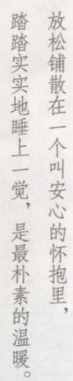 放松铺散在一个叫安心的怀抱里，
踏踏实实地睡上一觉，是最朴素的温暖。